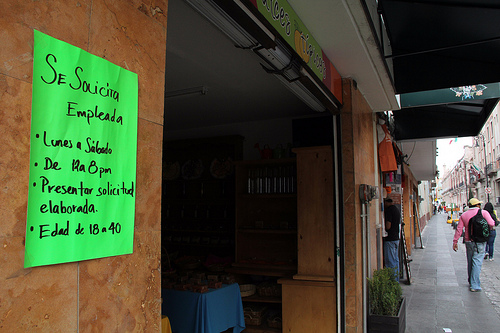 SE Solicita
Empleada
• Lunes a Sábado
• De 12 a 8pm
• Presentar solicitud
elaborada.
• Edad de 18 a 40